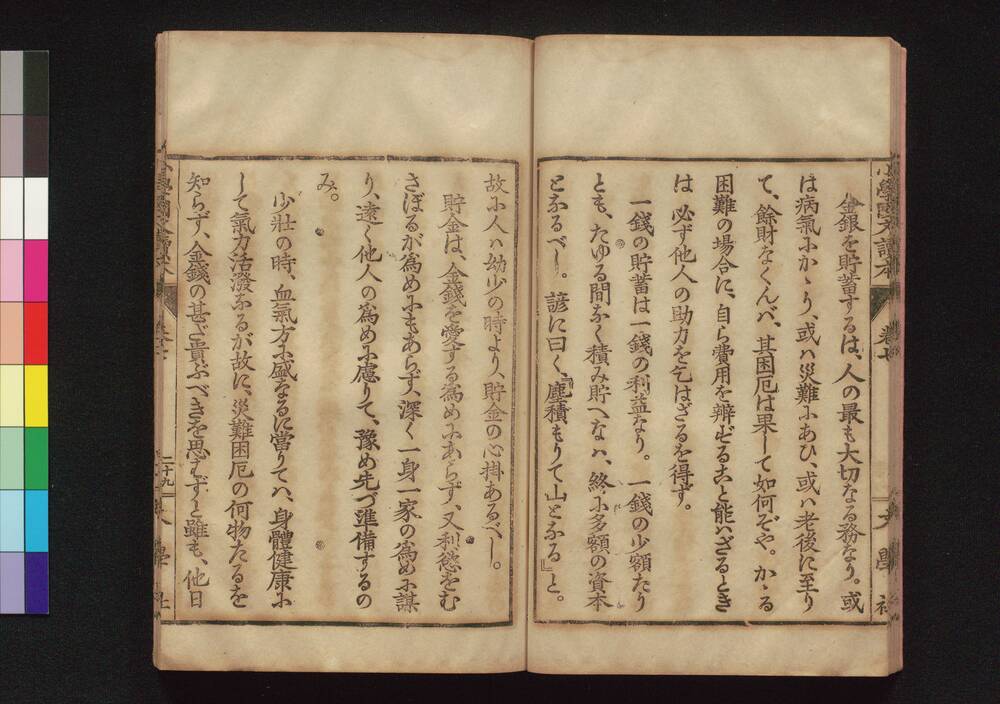 金銀を貯蓄するは、人の最も大切なる務なり。或
は病氣にかゝり、或ハ災難にあひ、或ハ老後に至り
て、餘財なくんバ、其困厄は果して如何ぞや。かゝる
困難の場合に、自ら費用を辨ずること能ハざるとき
は 必ず他人の助力を乞はざるを得ず。
一錢の貯蓄は一錢の利益なり。一錢の少額たり
とも、たゆる間なく積み貯へなハ、終に多額の資本
となるべし。諺に曰く、『塵積もりて山となる』と。
故に人ハ幼少の時より、貯金の心掛あるべし。
貯金は、金錢を愛する爲めにあらず、又利慾をむ
さぼるが爲めにもあらず、深く一身一家の爲めに謀
り、遠く他人の爲めに慮りて、豫め先づ準備するの
み。
少壯の時、血氣方に盛なるに當りてハ、身體健康に
して氣方活潑なるが故に、災難困厄の何物たるを
知らず、金錢の甚だ貴ぶべきを思はずと雖も、他日
小學國文讀本
卷七
文學社
二十九